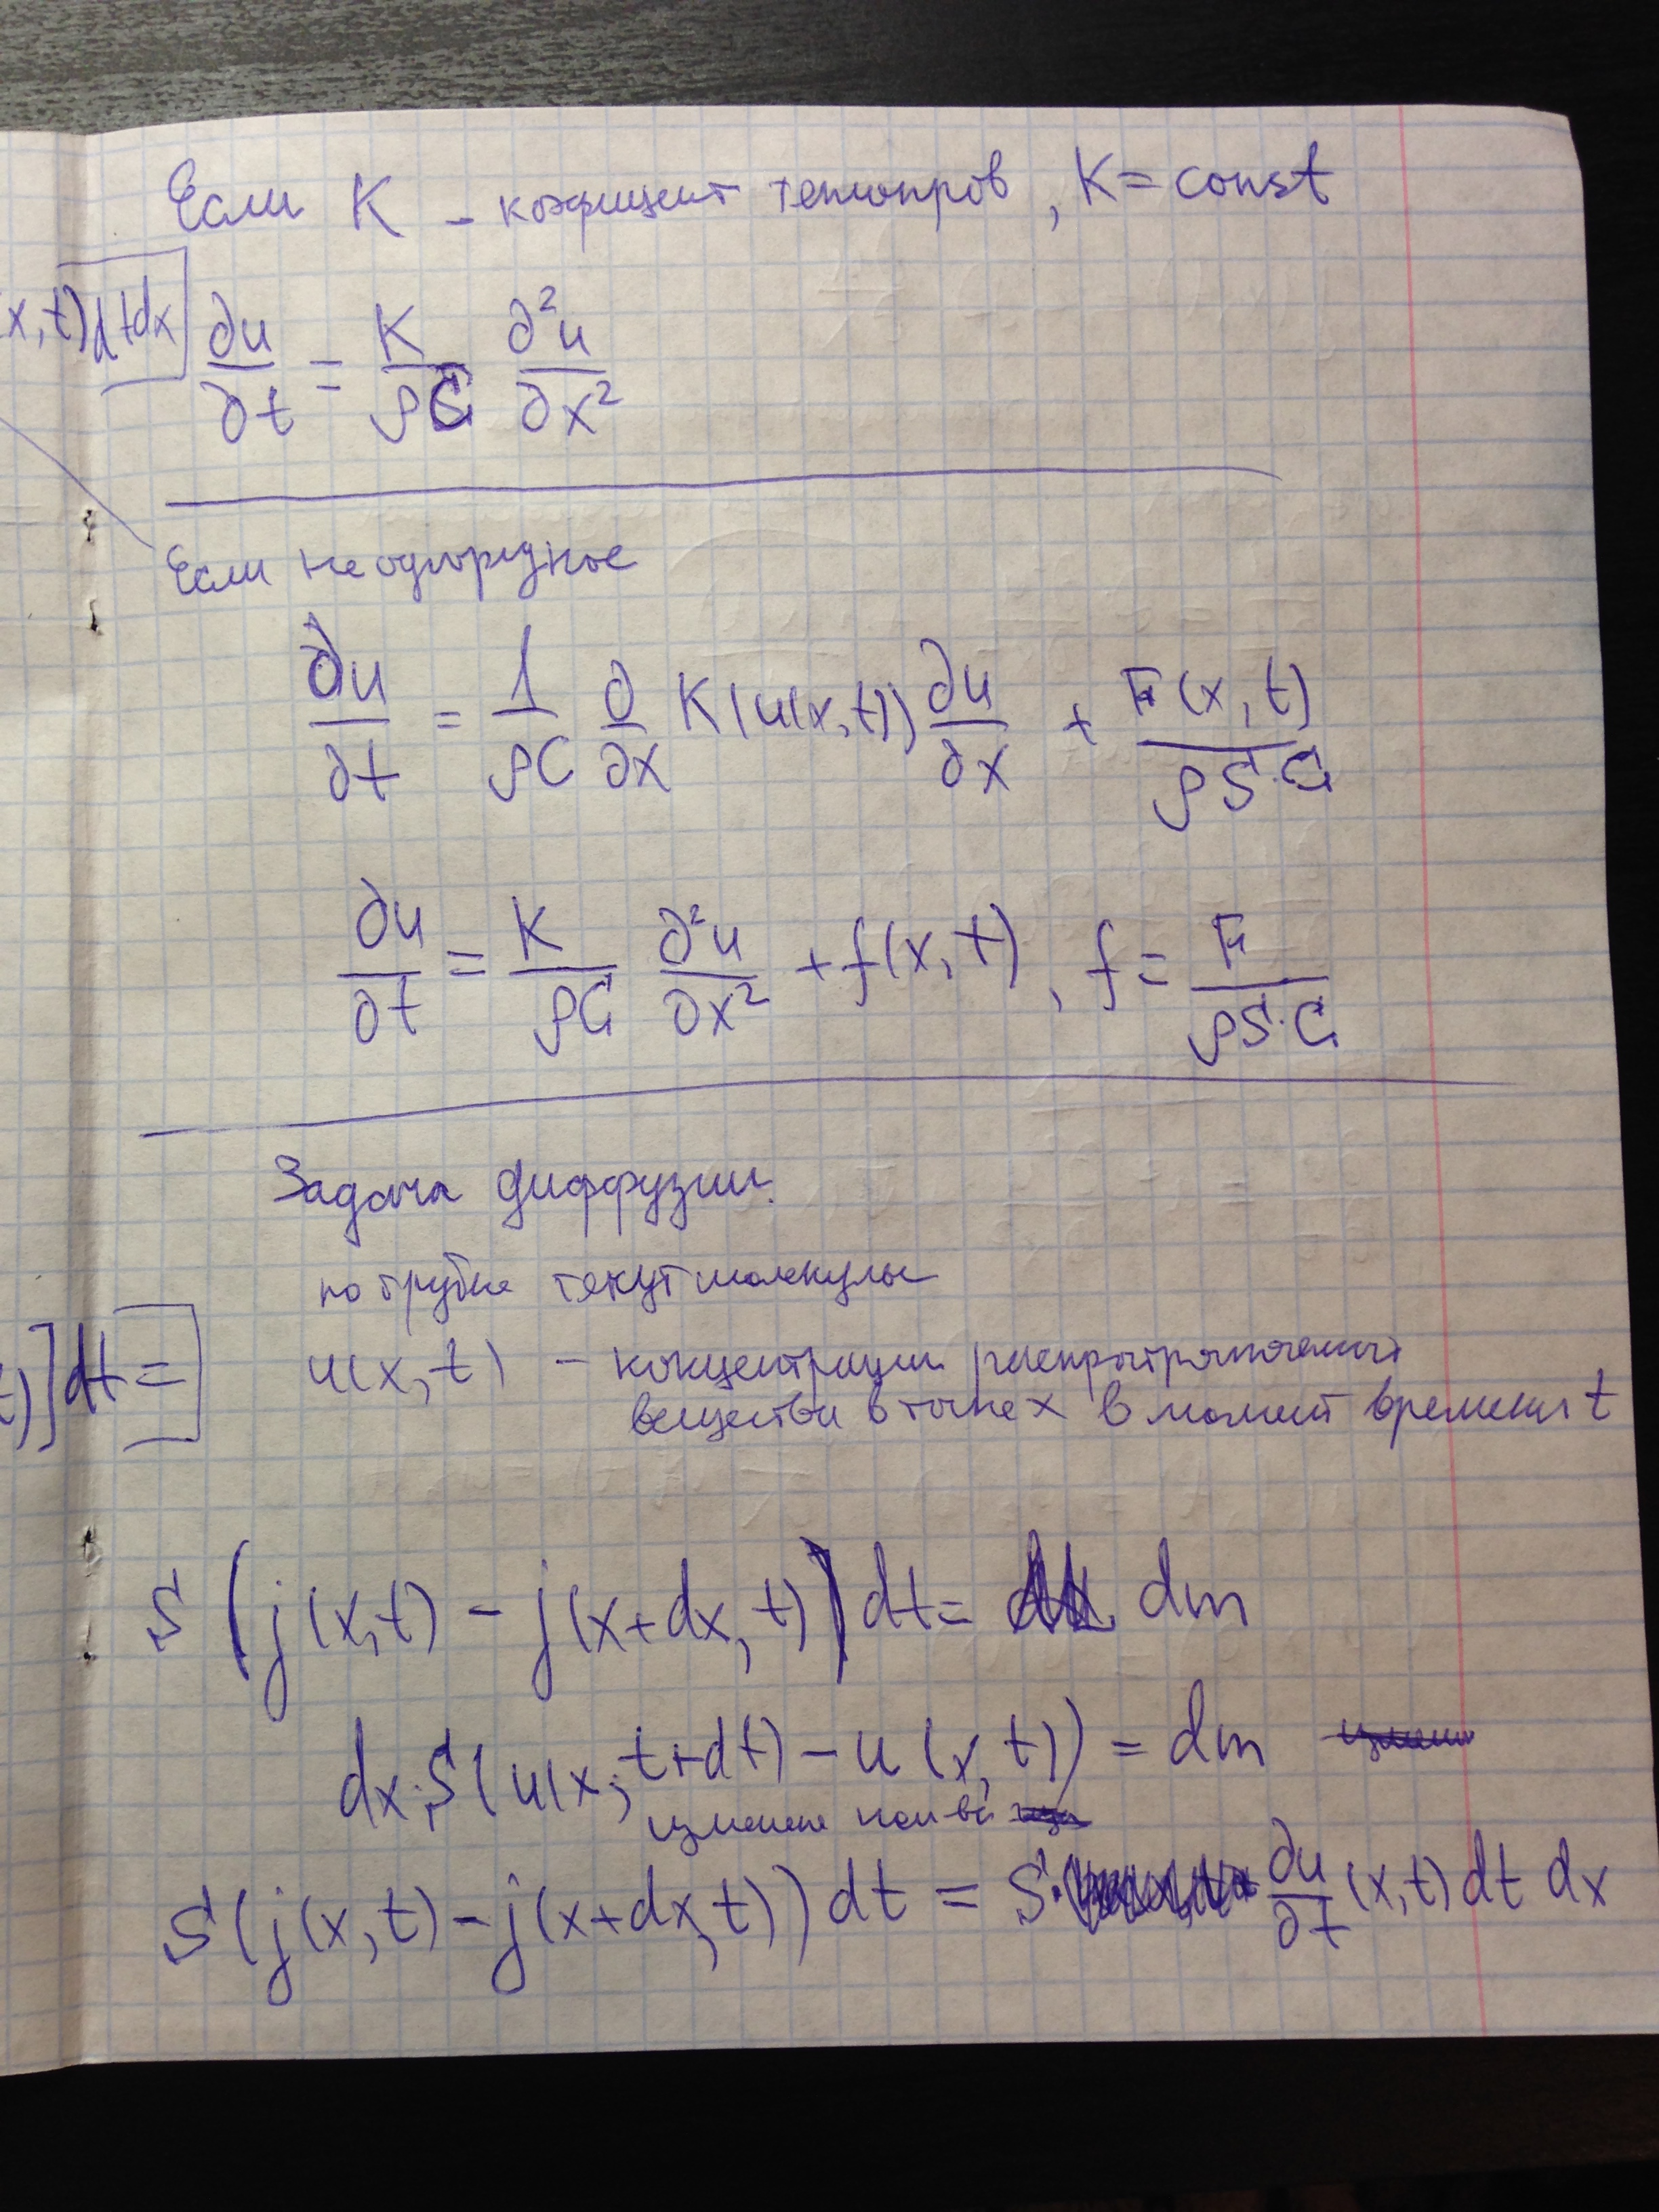 Если K - коэфицент теплопров, K = const
x, t)dtdx]
∂u/∂t = K/ρC ∂²u/∂x²
Если неоднородное
∂u/∂t = 1/ρC ∂/∂x K(u(x,t))∂u/∂x + F(x,t)/ρS·C
∂u/∂t = K/ρC ∂²u/∂x² + f(x,t), f = F/ρS·C
Задача диффузии.
по трубке текут молекулы
t)]dt =
u(x,t) - концентрации
вещества в точке x в момент времени t
S(j(x,t) - j(x+dx,t))dt = dm
dx·S(u(x,t+dt) - u(x,t)) = dm
измен кол-ва
S(j(x,t) - j(x+dx,t))dt = S· ∂u/∂t (x,t)dt dx